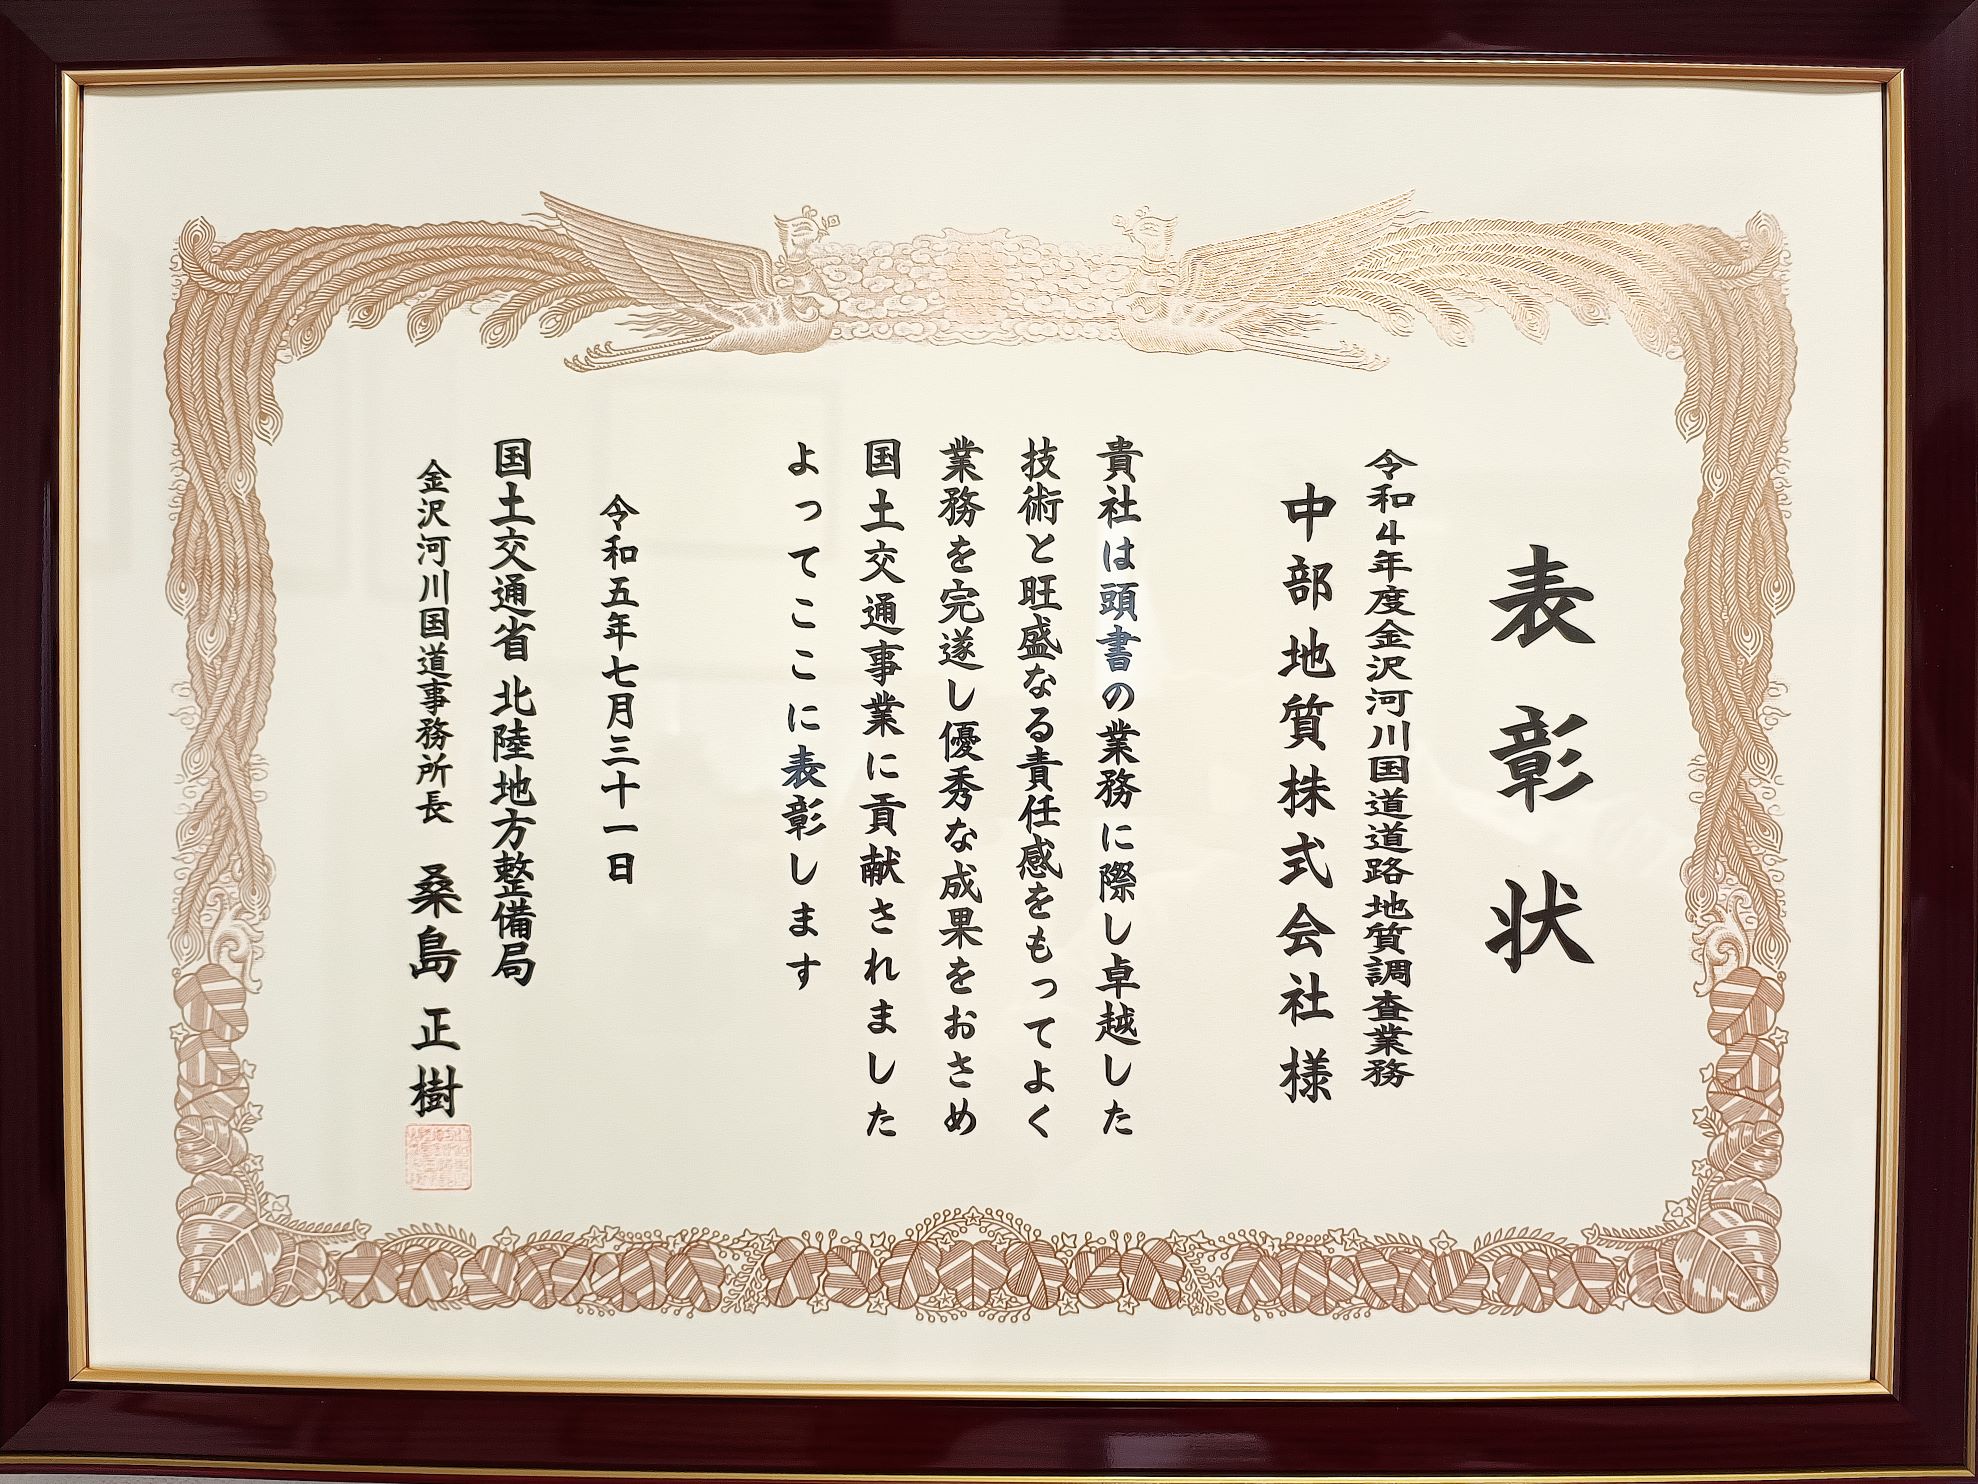 表彰状
令和4年度金沢河川国道道路地質調査業務
中部地質株式会社様
貴社は頭書の業務に際し卓越した
技術と旺盛なる責任感をもってよく
業務を完遂し優秀な成果をおさめ
国土交通事業に貢献されました
よってここに表彰します
令和五年七月三十一日
国土交通省北陸地方整備局
金沢河川国道事務所長 桑島正樹